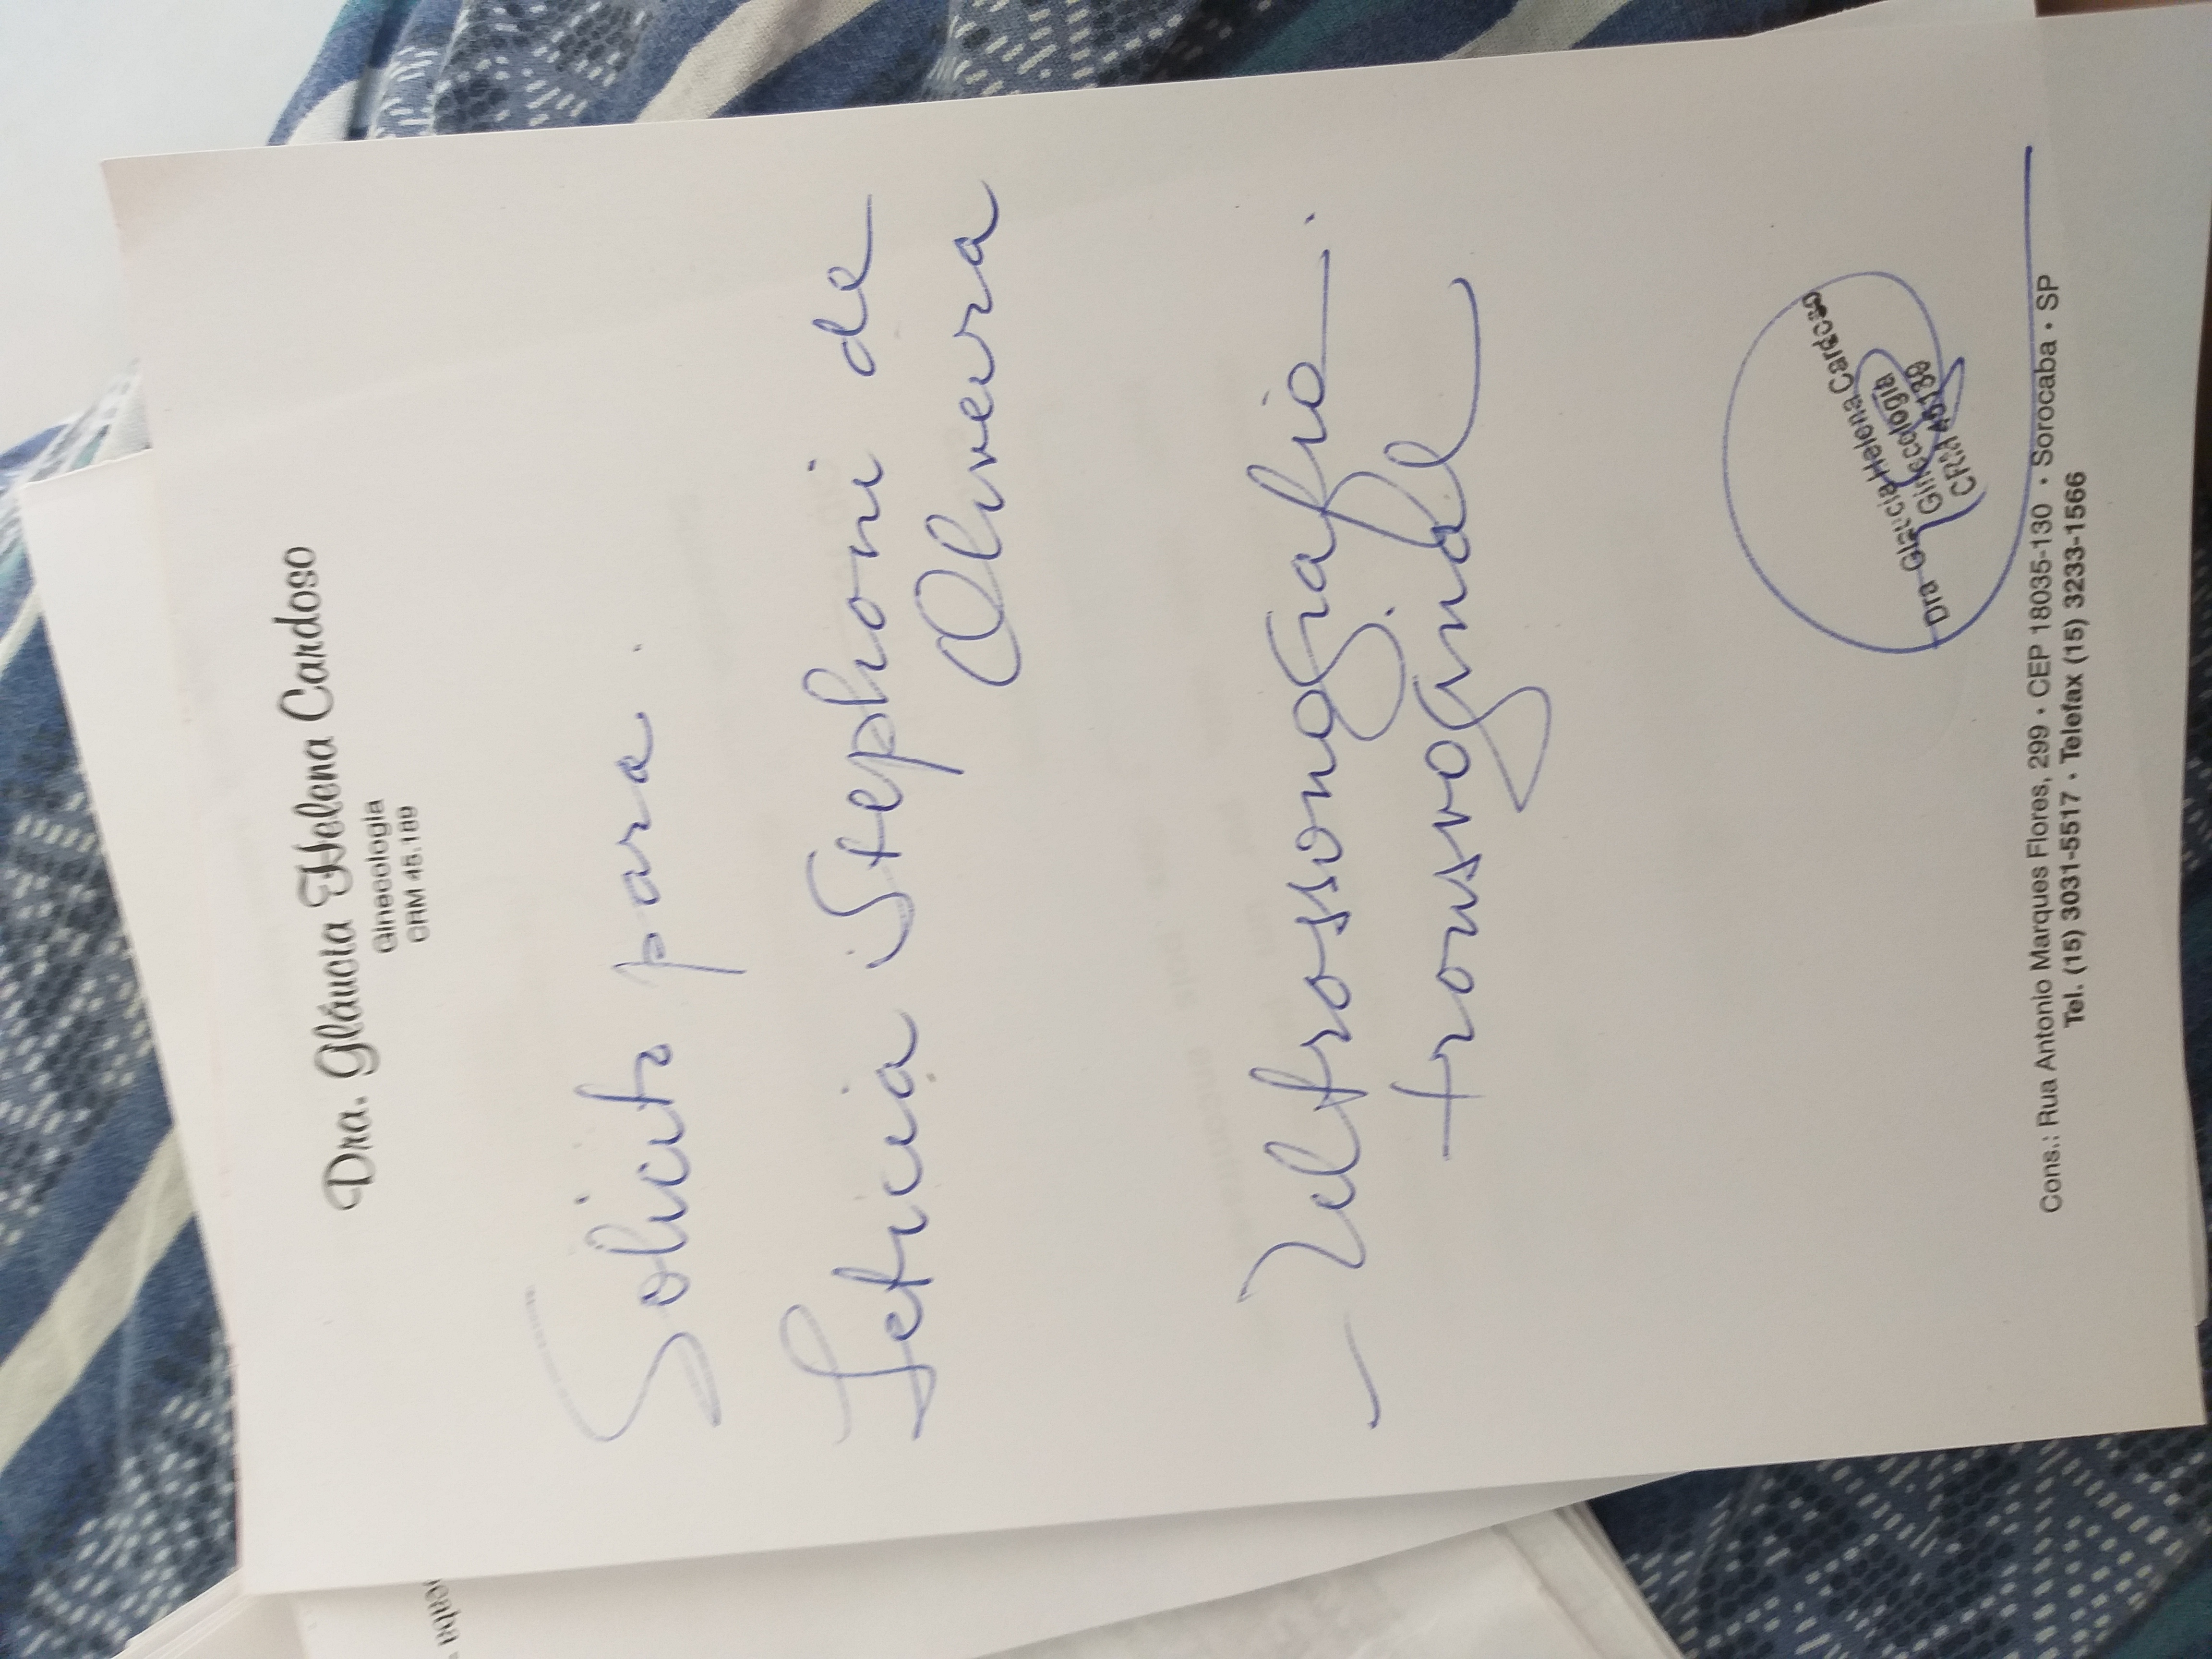 Dra. Gláucia Helena Cardoso
Ginecologia
CRM 45.189
Solicito para.
Leticia Stephani de
Oliveira
- Ultrassonografia.
transvaginal
Dra Glaucia Helena Cardoso
Ginecologia
CRM 45139
Cons.: Rua Antonio Marques Flores, 299 • CEP 18035-130 • Sorocaba • SP
Tel. (15) 3031-5517 • Telefax (15) 3233-1566